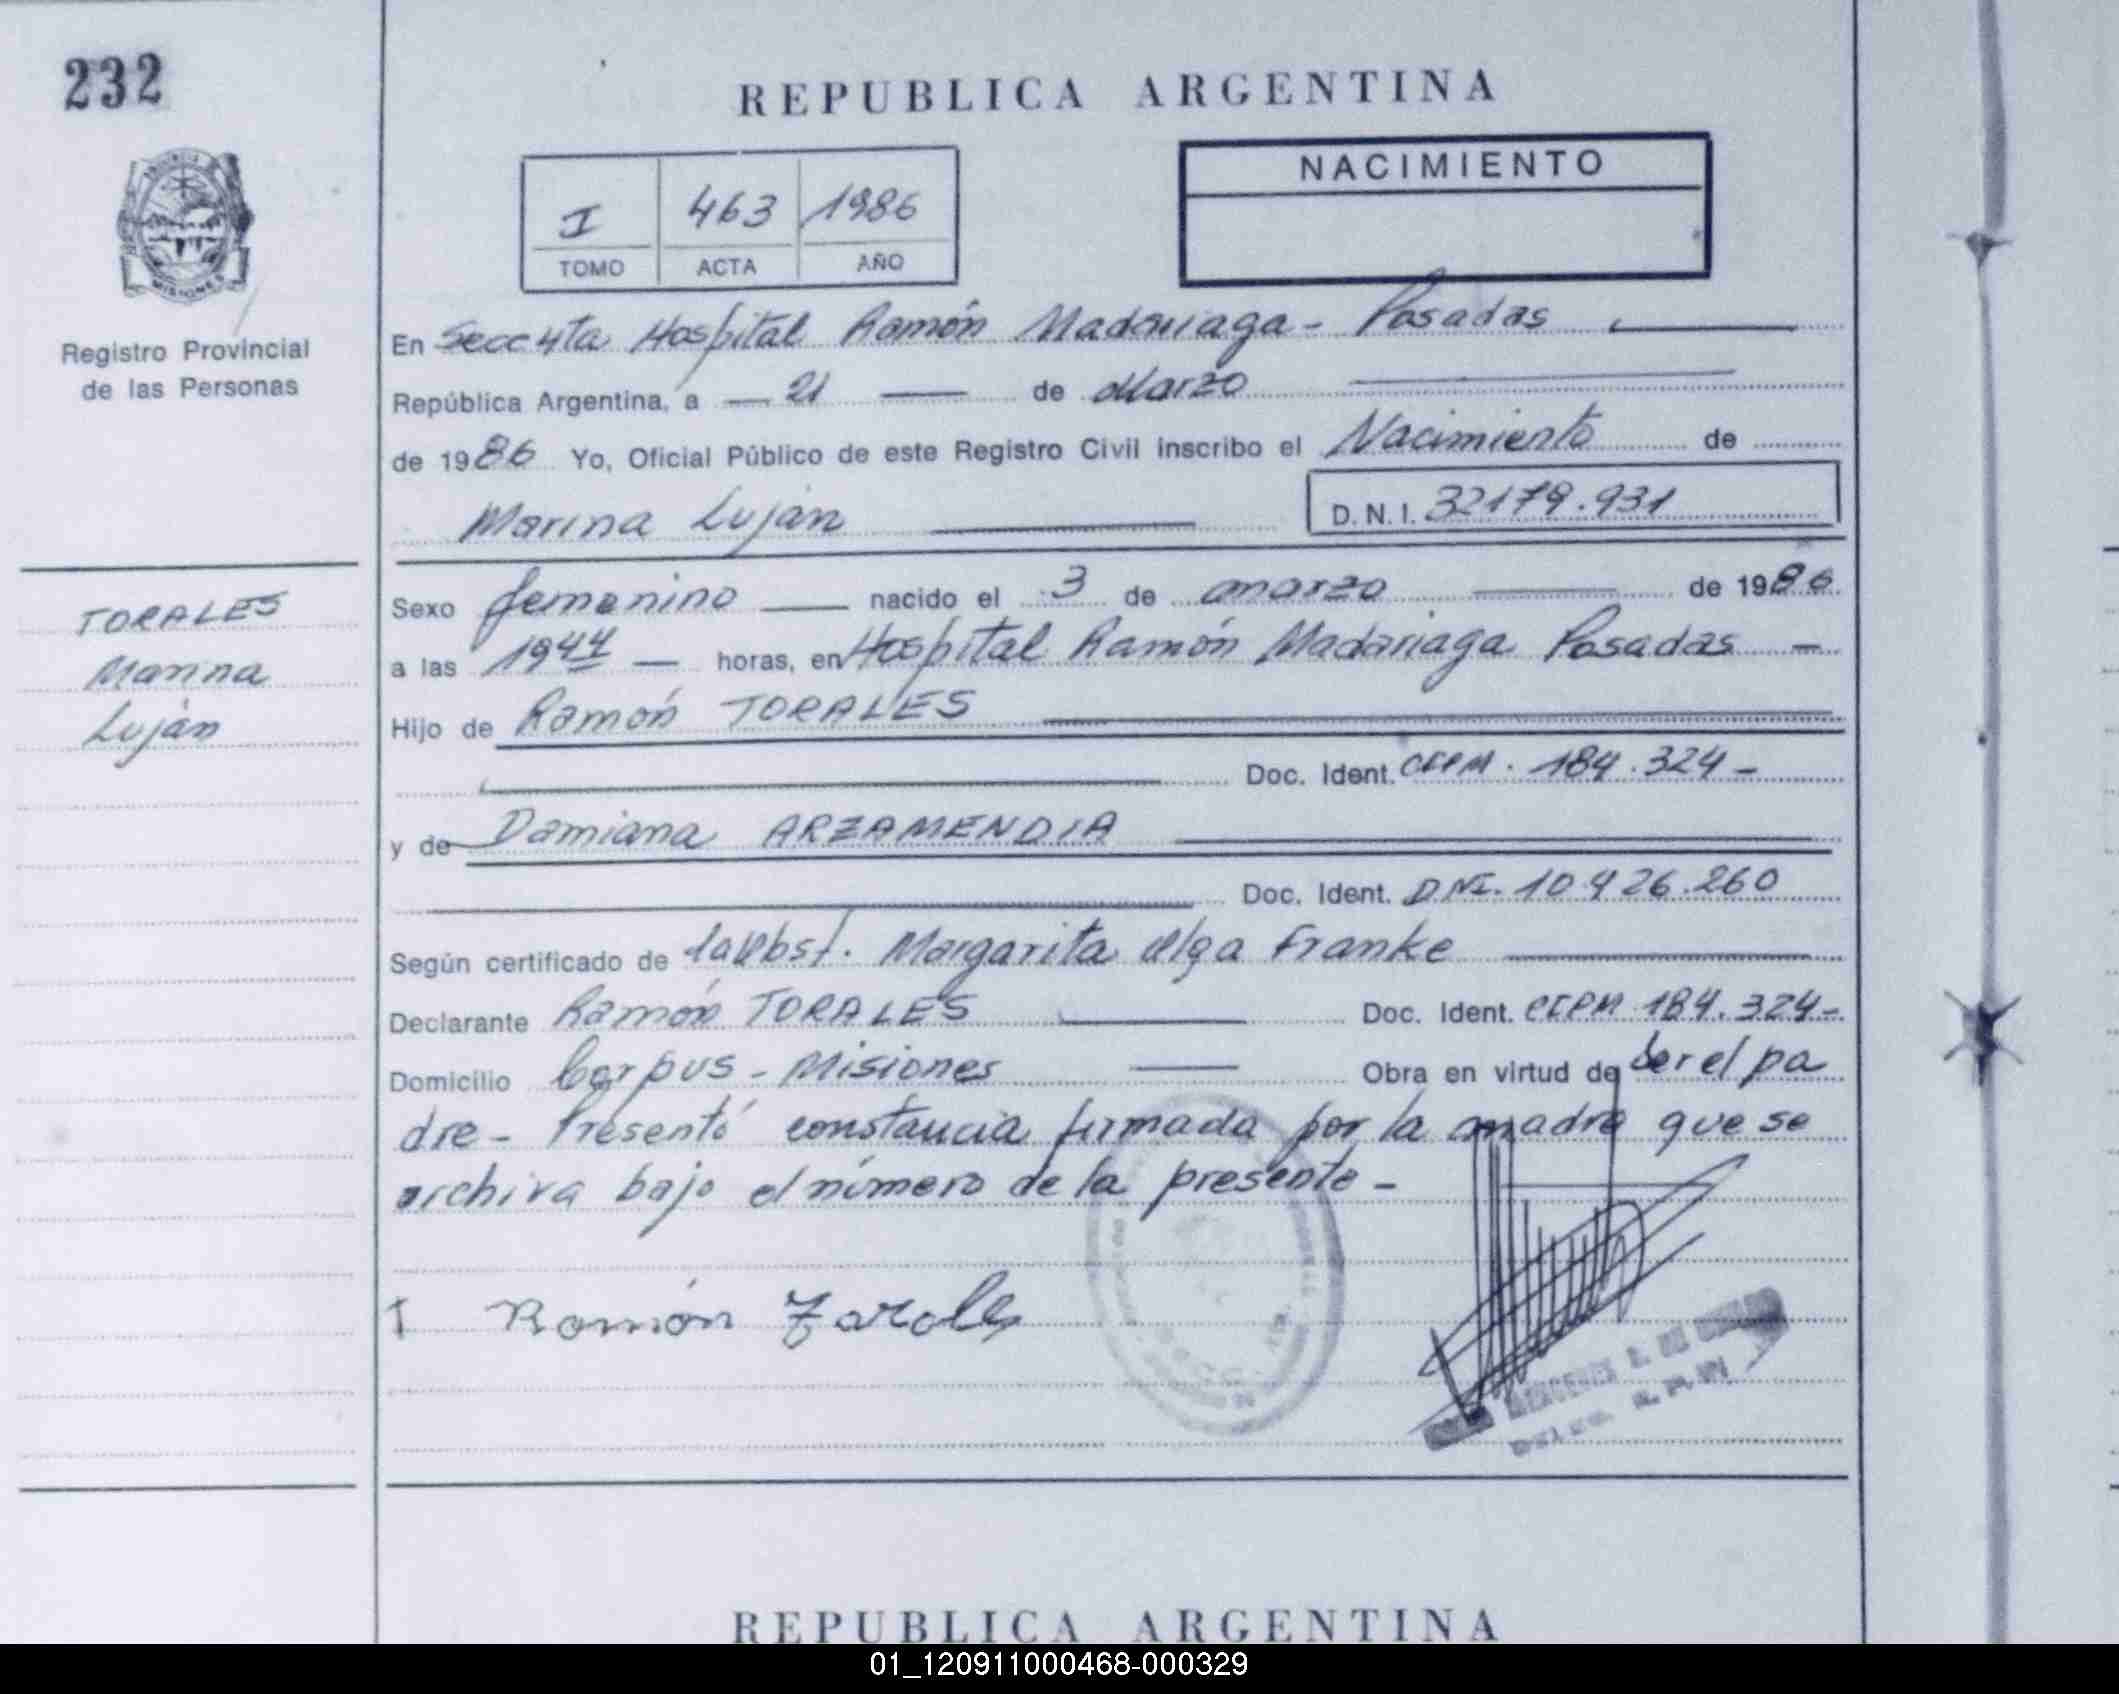 232
REPUBLICA ARGENTINA
I 463 1986
TOMO ACTA AÑO
NACIMIENTO
MISIONES
Registro Provincial
de las Personas
En Secc 4ta Hospital Ramón Madariaga - Posadas
República Argentina, a — 21 — de Marzo
de 1986 Yo, Oficial Público de este Registro Civil inscribo el Nacimiento de
Marina Luján D.N.I. 32179.931
TORALES
Marina
Luján
Sexo femenino — nacido el 3 de marzo — de 1986
a las 1944 — horas, en Hospital Ramón Madariaga Posadas —
Hijo de Ramón TORALES
Doc. Ident. CIPM. 184.324 -
y de Damiana ARZAMENDIA
Doc. Ident. DNI. 10.926.260
Según certificado de la Obst. Margarita Olga Franke
Declarante Ramón TORALES Doc. Ident. CIPM 184.324 -
Domicilio Corpus - Misiones — Obra en virtud de ser el pa
dre - Presentó constancia firmada por la madre que se
archiva bajo el número de la presente -
Ramón Torales
REPUBLICA ARGENTINA
01_120911000468-000329